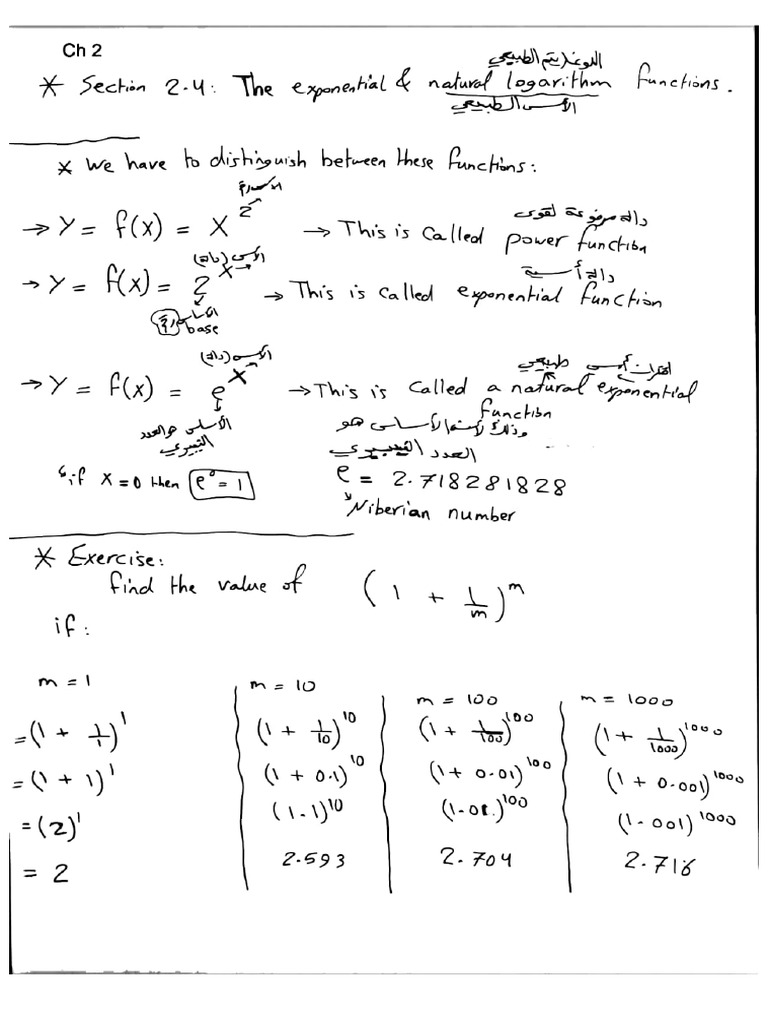 Ch 2
اللوغاريتم الطبيعي
* Section 2.4: The exponential & natural logarithm functions.
الأسس الطبيعي
* we have to distinguish between these functions:
→ Y = f(x) = X^2 → This is called power function
دالة مرفوعة لقوى
→ Y = f(x) = 2^x → This is called exponential function
دالة أسية
base
→ Y = f(x) = e^x → This is called a natural exponential function
الأساس هو العدد النيبيري
العدد النيبيري
if x = 0 then e^0 = 1
e = 2.718281828
Niberian number
* Exercise:
find the value of (1 + 1/m)^m
if:
m = 1 m = 10 m = 100 m = 1000
= (1 + 1/1)^1 (1 + 1/10)^10 (1 + 1/100)^100 (1 + 1/1000)^1000
= (1 + 1)^1 (1 + 0.1)^10 (1 + 0.01)^100 (1 + 0.001)^1000
= (2)^1 (1.1)^10 (1.01)^100 (1.001)^1000
= 2 2.593 2.704 2.716